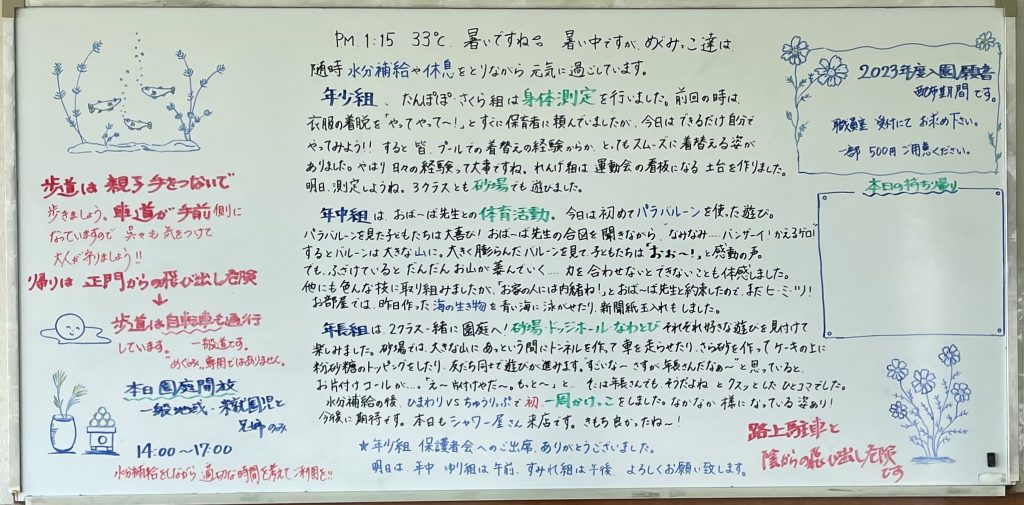 PM.1:15 33℃. 暑いですね。 暑い中ですが、めぐみっこ達は、
随時 水分補給や休息をとりながら 元気に過ごしています。
年少組、たんぽぽ・さくら組は身体測定を行いました。前回の時は、
衣服の着脱を「やってやって〜！」とすぐに保育者に頼んでいましたが、今日はできるだけ自分で
やってみよう!! すると皆、プールでの着替えの経験からか、とってもスムーズに着替える姿が
ありました。やはり日々の経験って大事ですね。れんげ組は 運動会の看板になる 土台を作りました。
明日、測定しようね。3クラスとも 砂場でも遊びました。
年中組は、おばーば先生との体育活動。今日は初めてパラバルーンを使った遊び。
パラバルーンを見た子どもたちは大喜び！おばーば先生の合図を聞きながら、“なみなみ……バンザーイ！かえるゲロ”
するとバルーンは大きな山に。大きく膨らんだバルーンを見て、子どもたちは“おぉ〜！”と感動の声。
でも、ふざけていると だんだん お山が萎んでいく…. 力を合わせないとできないことも体感しました。
他にも色んな技に取り組みましたが、「お家の人には内緒ね！」とおばーば先生と約束したので、まだヒ・ミ・ツ！
お部屋では、昨日作った海の生き物を青い海に泳がせたり、新聞紙玉入れもしました。
年長組は、2クラス一緒に園庭へ！砂場・ドッジボール・なわとび それぞれ好きな遊びを見付けて
楽しみました。砂場では、大きな山にあっという間にトンネルを作って車を走らせたり、さら砂を作ってケーキの上に
粉砂糖のトッピングをしたり、友だち同士で遊びが進みます。“すごいな〜さすが年長さんだなぁ〜”と思っていると、
お片付けコールが…。“え〜片付けやだ〜。もっと〜”と… でも年長さんでも、そうだよね とクスッとした ひとコマでした。
水分補給の後、ひまわりVSちゅうりっぷで初一周かけっこをしました。なかなか様になっている姿あり！
今後に期待です。本日もシャワー屋さん来店です。きもち良かったね〜！
★年少組 保護者会へのご出席、ありがとうございました。
明日は、年中 ゆり組は午前、すみれ組は午後 よろしくお願い致します。
歩道は 親子手をつないで
歩きましょう。車道が手前側に
なっていますので 呉々も気をつけて
大人が守りましょう!!
帰りは 正門からの飛び出し危険
歩道は自転車も通行
しています。 一般道です。
“めぐみ”専用ではありません。
本日園庭開放
一般地域・未就園児と
兄姉のみ
14:00〜17:00
水分補給をしながら 適切な時間を考えてご利用を!!
2023年度入園願書
配布期間です。
職員室 受付にて お求め下さい。
一部 500円 ご用意ください。
本日の持ち帰り
路上駐車と
陰からの飛び出し危険
です